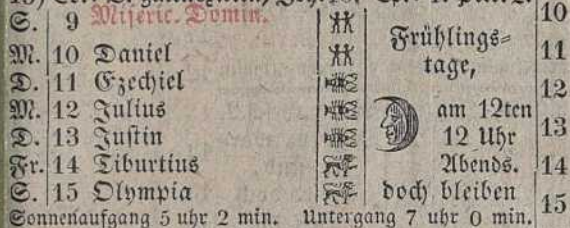 S. 9 Miseric. Domin. 10
M. 10 Daniel Frühlings=
D. 11 Ezechiel tage, 11
M. 12 Julius am 12ten 12
D. 13 Justin 12 Uhr 13
Fr. 14 Tiburtius Abends. 14
S. 15 Olympia doch bleiben 15
Sonnenaufgang 5 uhr 2 min. Untergang 7 uhr 0 min.